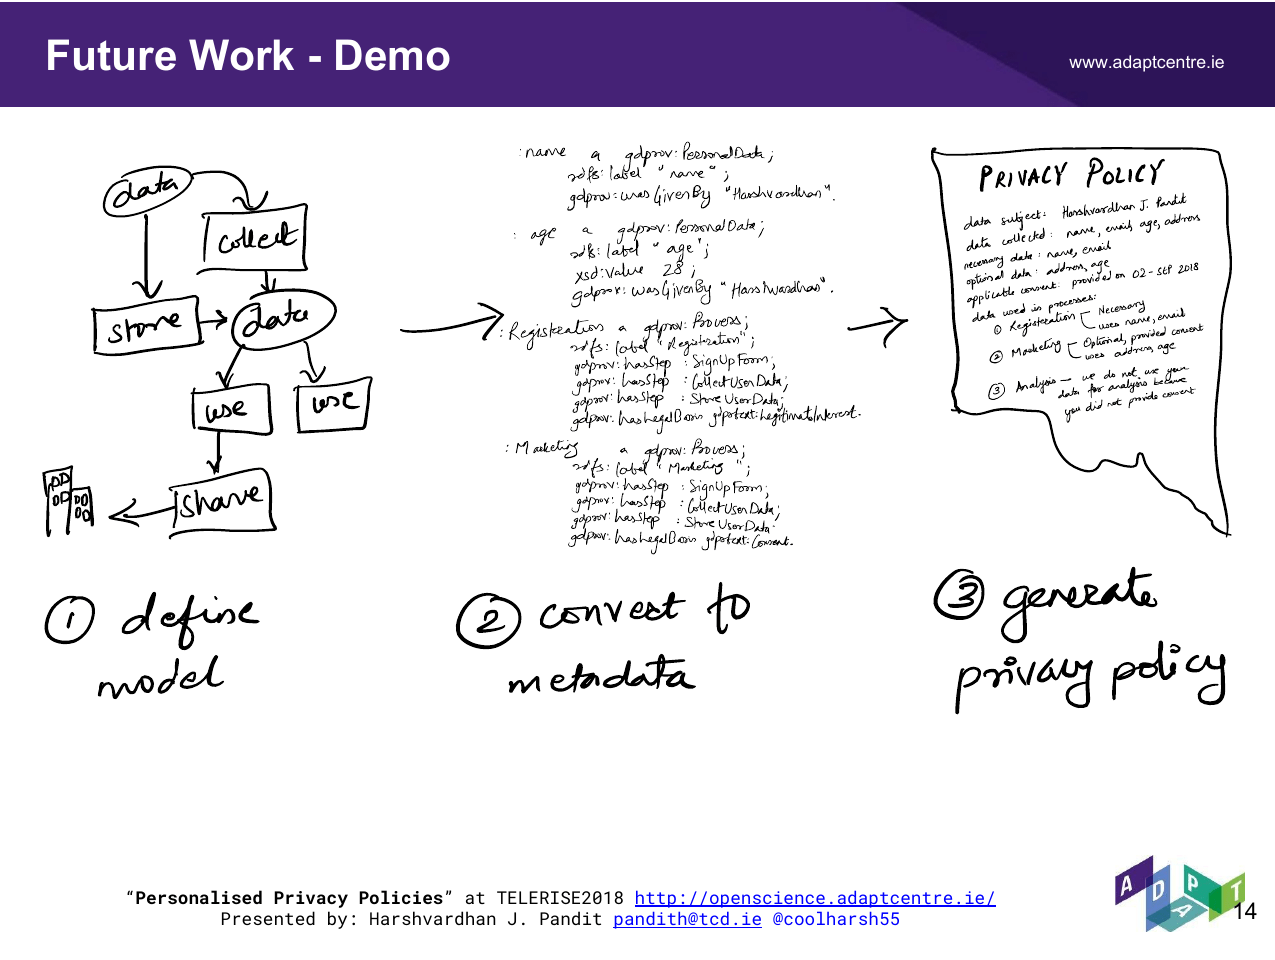 Future Work - Demo
www.adaptcentre.ie
data
collect
store
data
use
use
share
:name a gdprov:PersonalData;
rdfs:label "name";
gdprov:wasGivenBy "Harshvardhan".
:age a gdprov:PersonalData;
rdfs:label "age";
xsd:value 28;
gdprov:wasGivenBy "Harshvardhan".
:Registration a gdprov:Process;
rdfs:label "Registration";
gdprov:hasStep :SignUpForm;
gdprov:hasStep :CollectUserData;
gdprov:hasStep :StoreUserData;
gdprov:hasLegalBasis gdprtext:LegitimateInterest.
:Marketing a gdprov:Process;
rdfs:label "Marketing";
gdprov:hasStep :SignUpForm;
gdprov:hasStep :CollectUserData;
gdprov:hasStep :StoreUserData.
gdprov:hasLegalBasis gdprtext:Consent.
PRIVACY POLICY
data subject: Harshvardhan J. Pandit
data collected: name, email, age, address
necessary data: name, email
optional data: address, age
applicable consent: provided on 02-SEP 2018
data used in processes:
① Registration - Necessary
uses name, email
② Marketing - Optional, provided consent
uses address, age
③ Analysis - we do not use your
data for analysis because
you did not provide consent
① define
model
② convert to
metadata
③ generate
privacy policy
“Personalised Privacy Policies” at TELERISE2018 http://openscience.adaptcentre.ie/
Presented by: Harshvardhan J. Pandit pandith@tcd.ie @coolharsh55
ADAPT
14